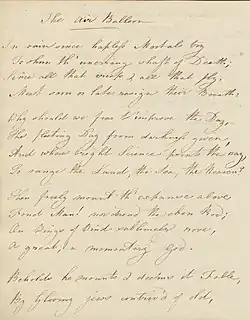 The Air Balloon
In vain since hapless Mortals try
To shun th' unerring shaft of Death;
Since all that creep & all that fly,
Must soon or later resign their Breath;
Why should we fear to improve the Day,
This fleeting Day from darkness given,
And where bright Science points the way,
To range the Land, the Sea, the Heaven?
Then freely mount th' expanse above
Fond Man! nor dread the ebon Rod;
On Wings of Wind sublimely rove,
A great, a momentary God.
Behold he mounts & deems it Fable,
By glowing
of old,